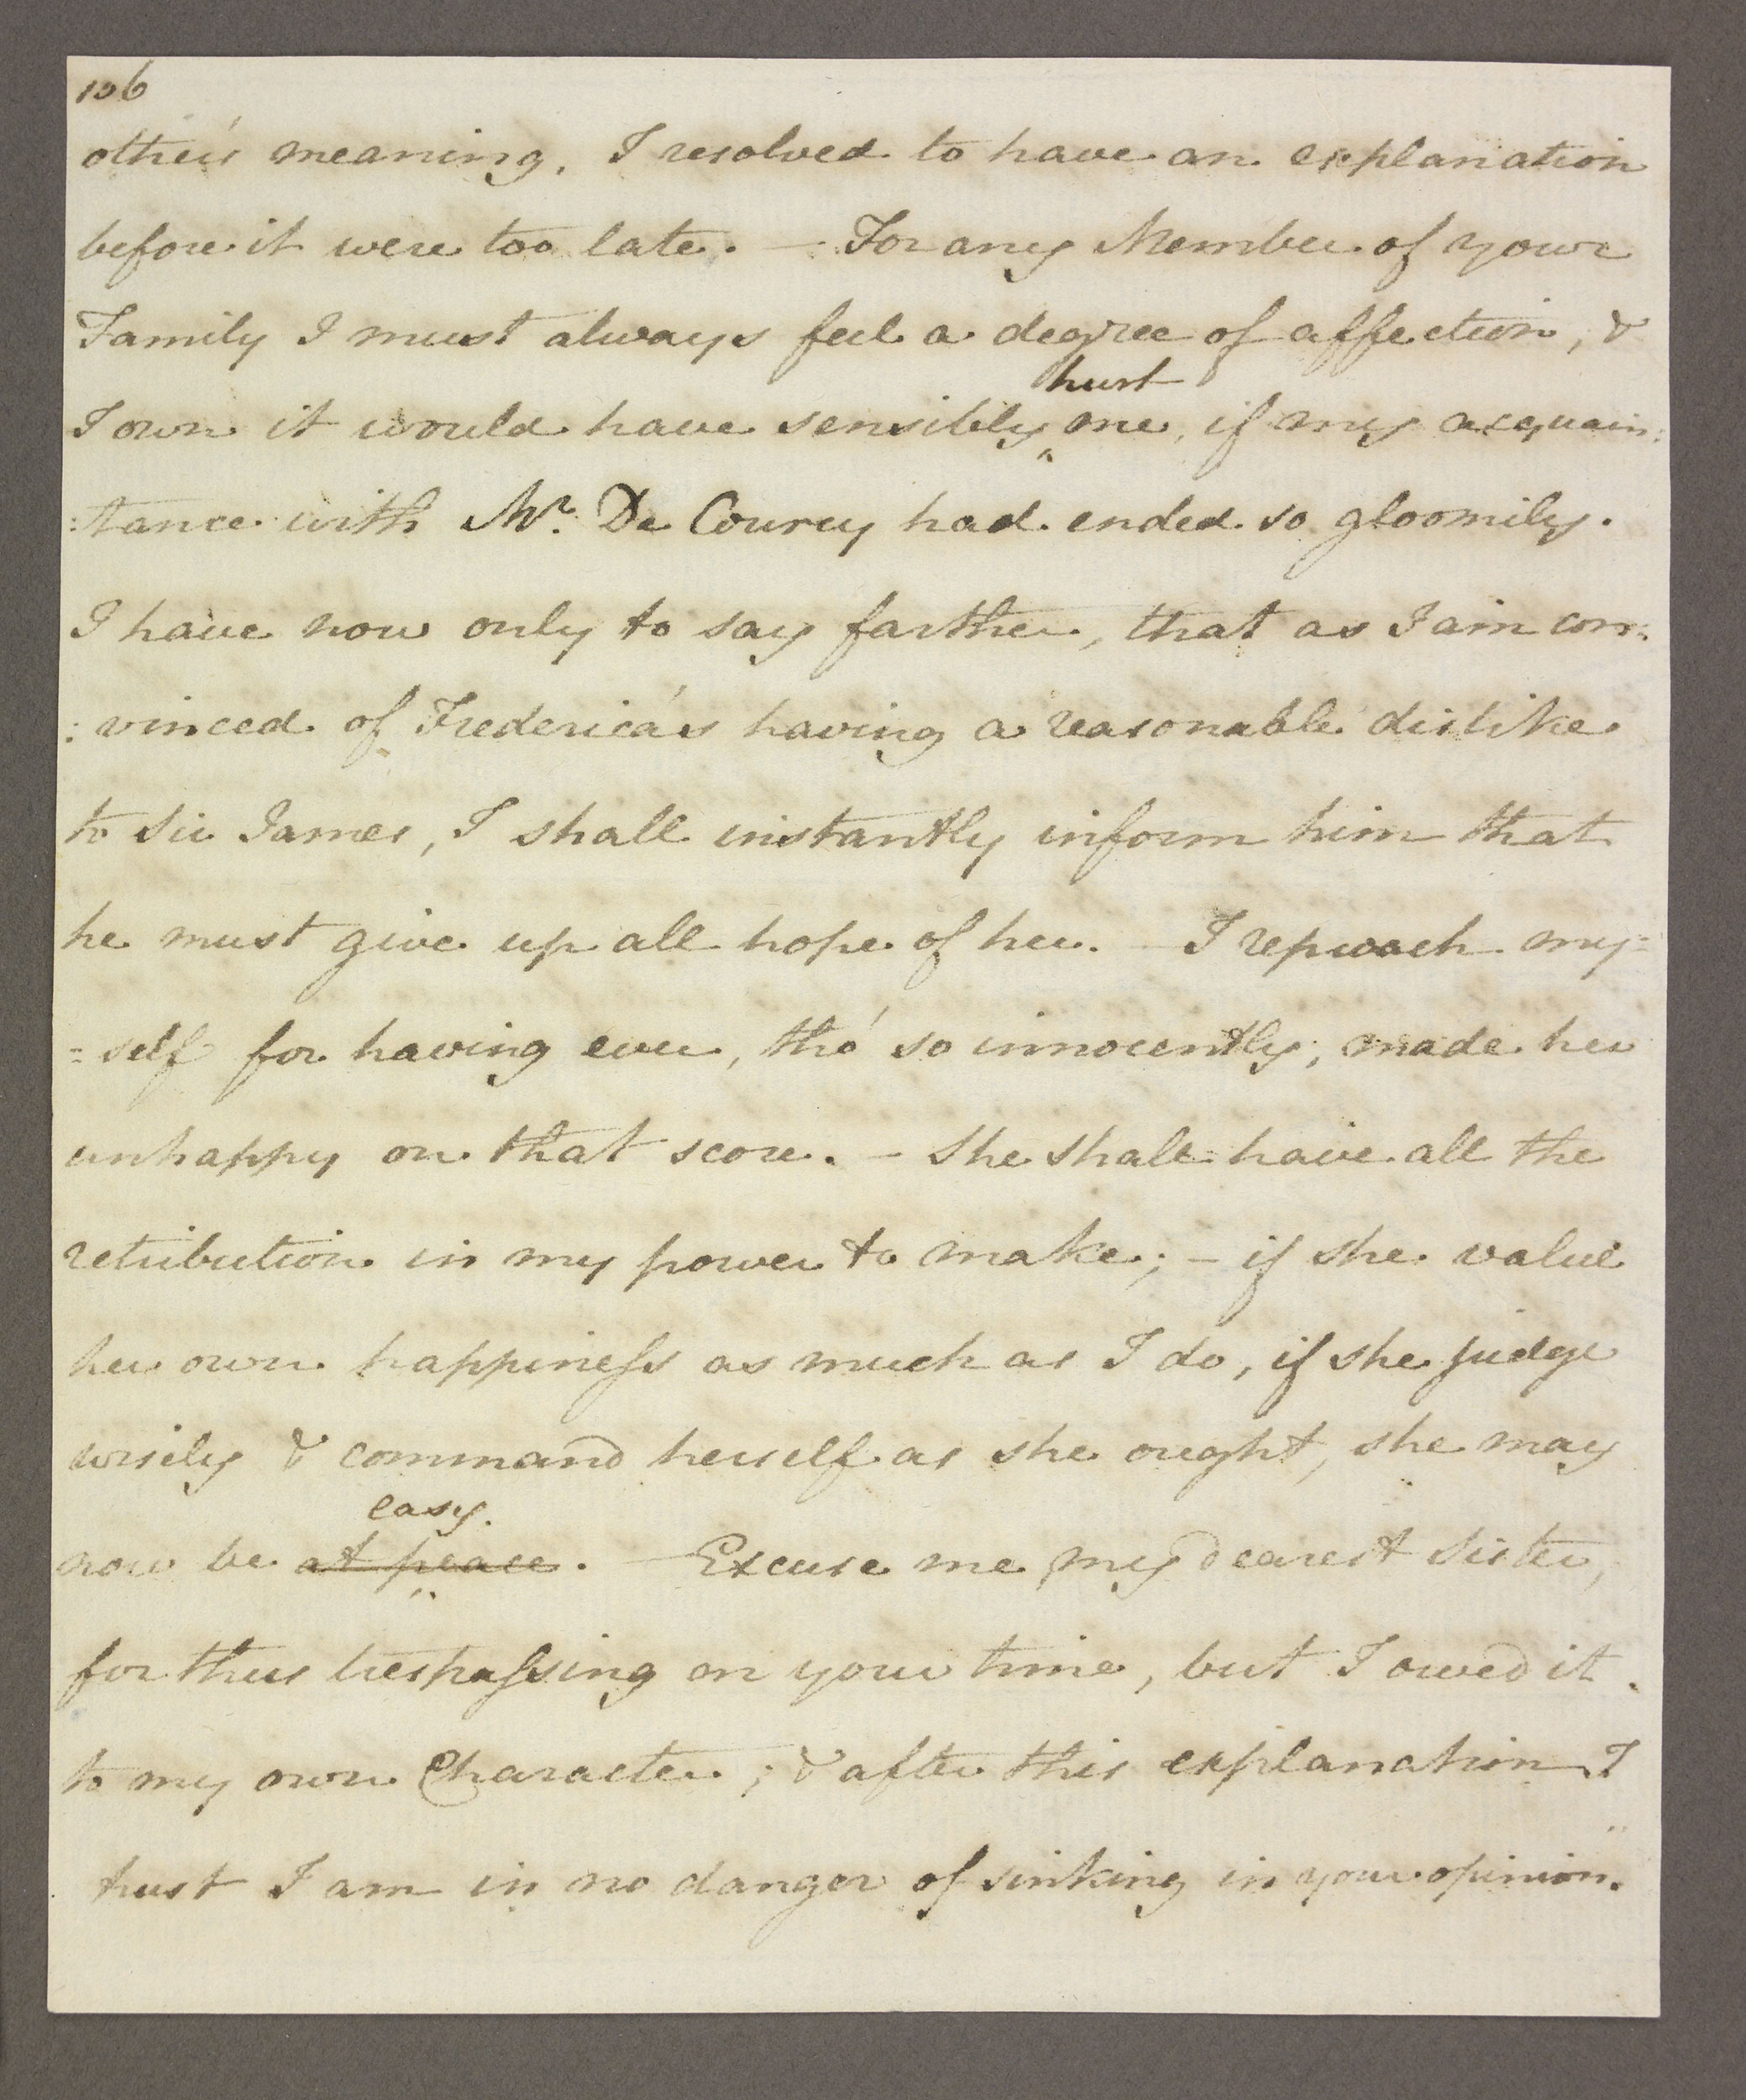 106
other's meaning, I resolved to have an explanation
before it were too late. — For any Member of your
Family I must always feel a degree of affection, &
hurt
I own it would have sensibly me, if my acquain:
:tance with Mr. De Courcy had ended so gloomily.
I have now only to say farther, that as I am con:
:vinced of Frederica's having a reasonable dislike
to Sir James, I shall instantly inform him that
he must give up all hope of her. — I reproach my=
=self for having ever, tho' so innocently, made her
unhappy on that score. — She shall have all the
retribution in my power to make; — if she value
her own happineſs as much as I do, if she judge
wisely & command herself as she ought, she may
easy.
now be at peace. — Excuse me, my dearest Sister,
for thus trespaſsing on your time, but I owed it
to my own Character; & after this explanation I
trust I am in no danger of sinking in your opinion.